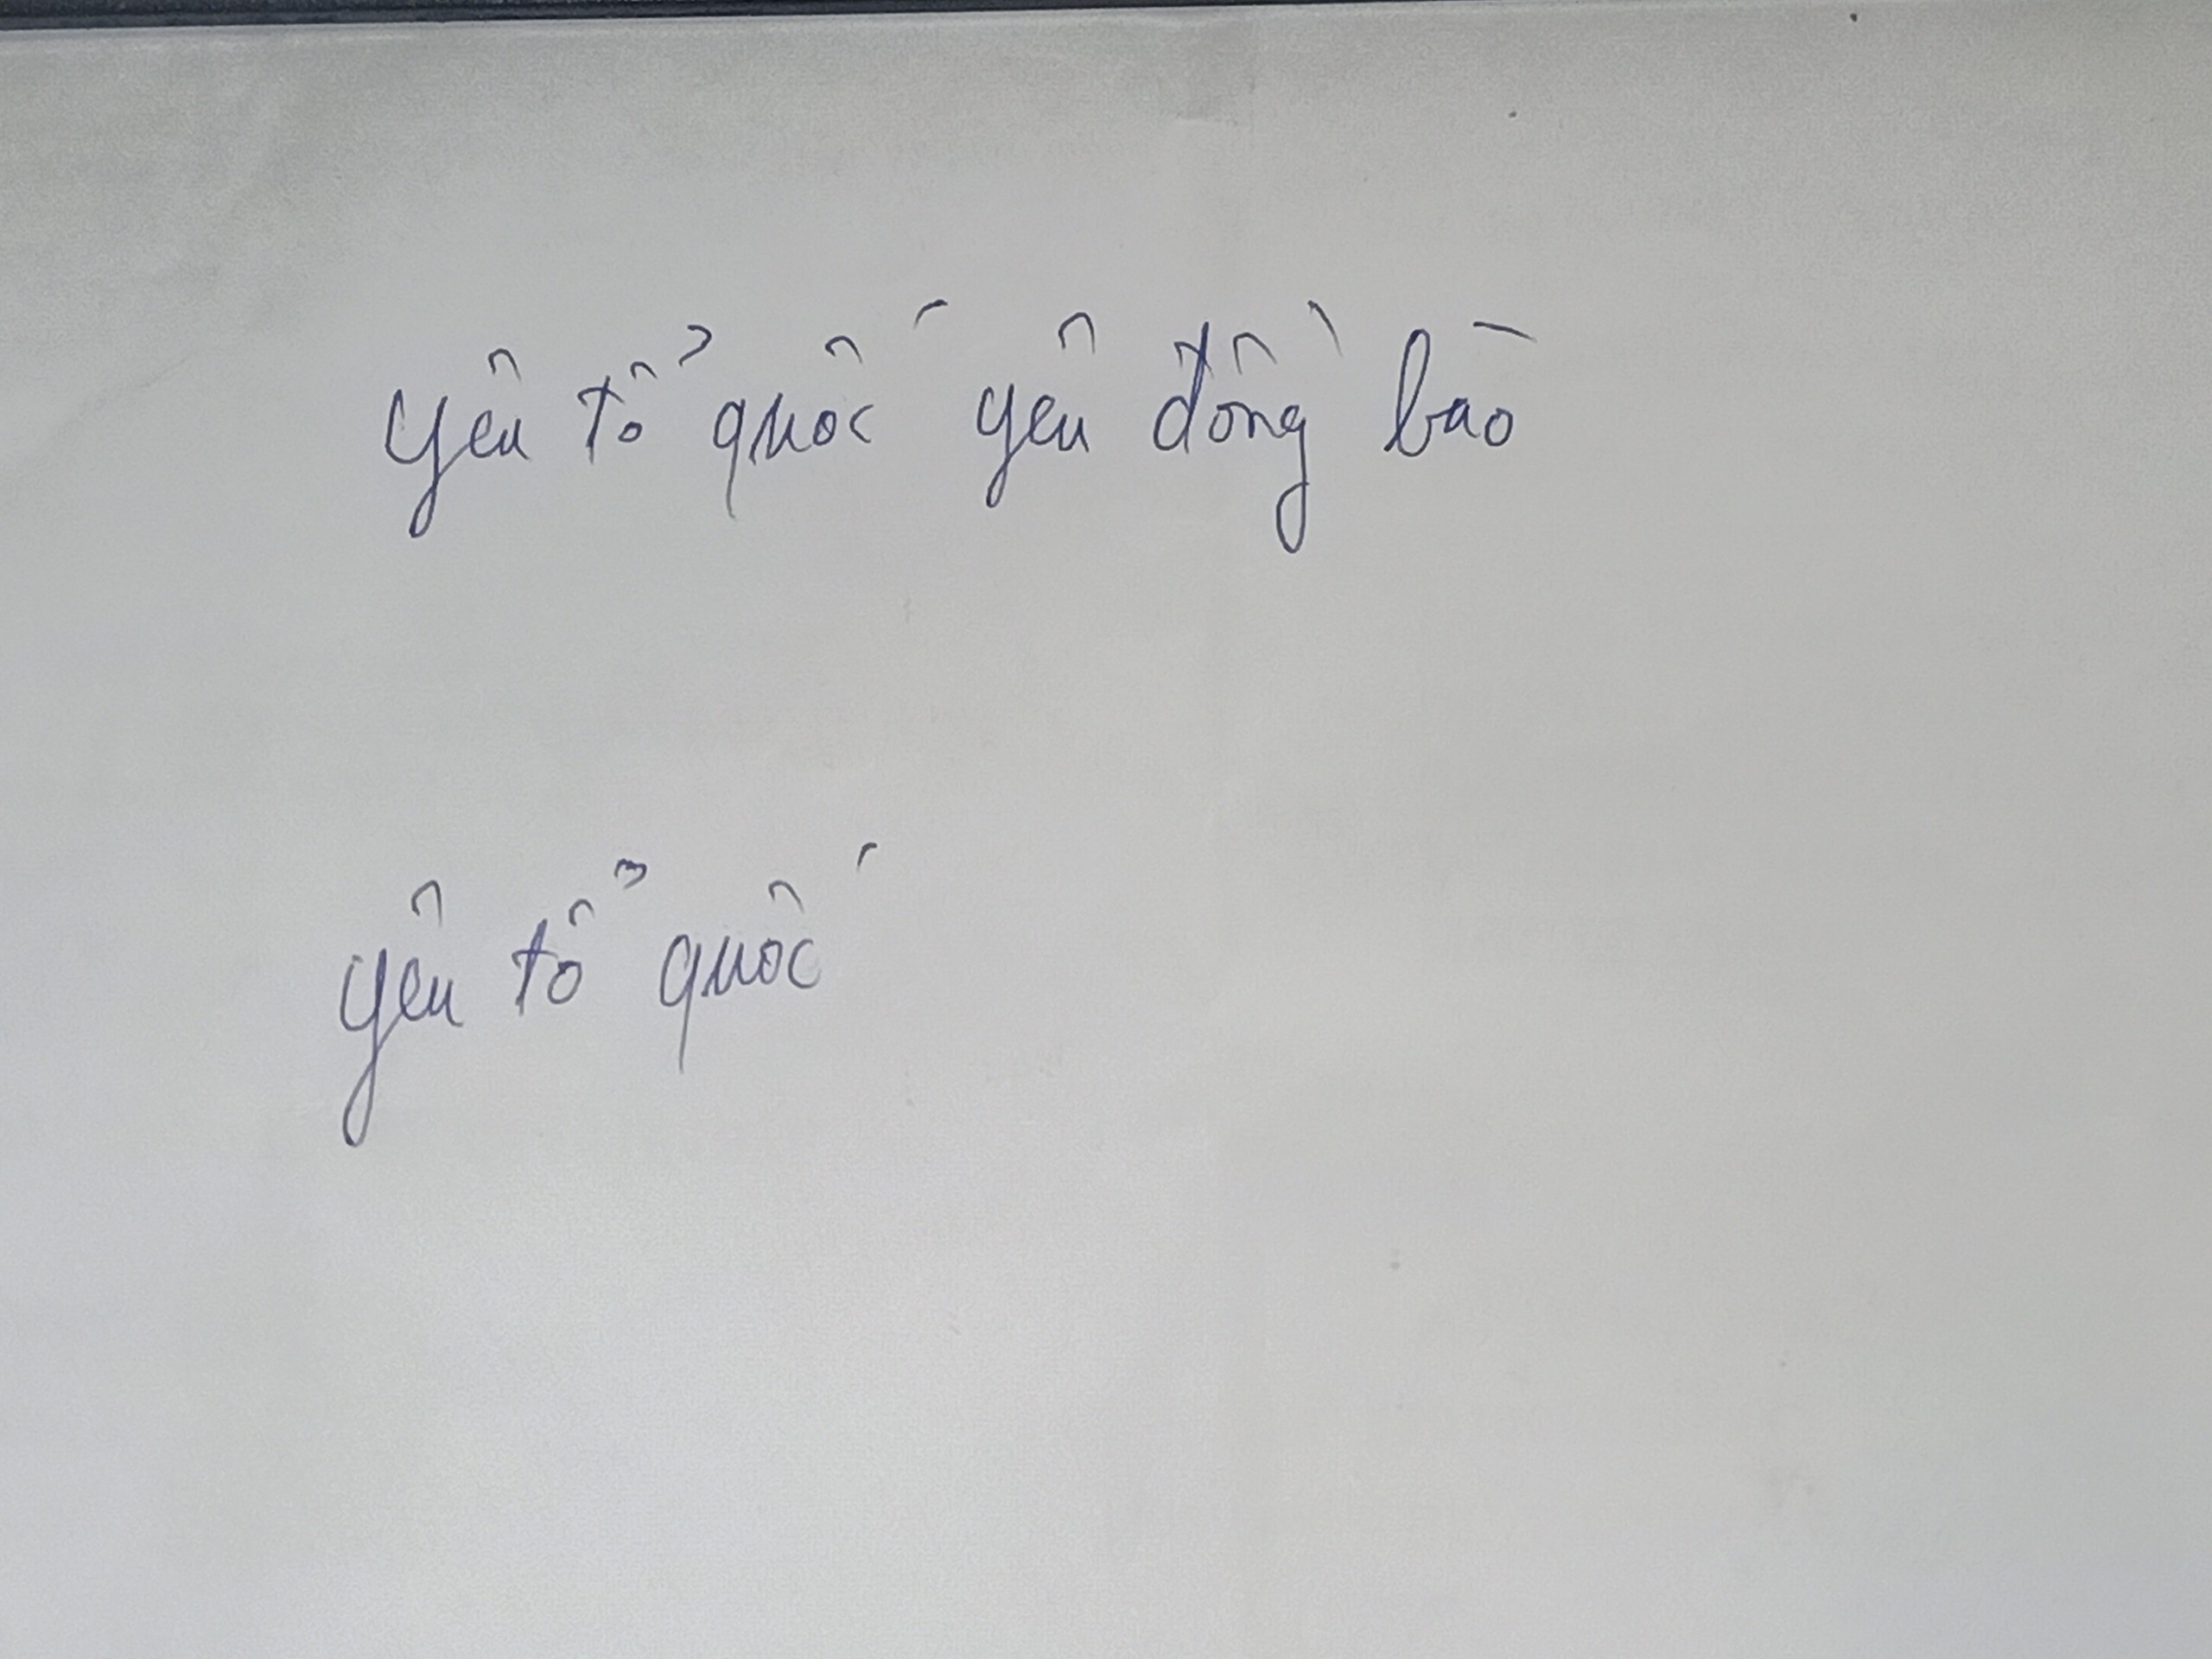 yêu tổ quốc yêu đồng bào
yêu tổ quốc